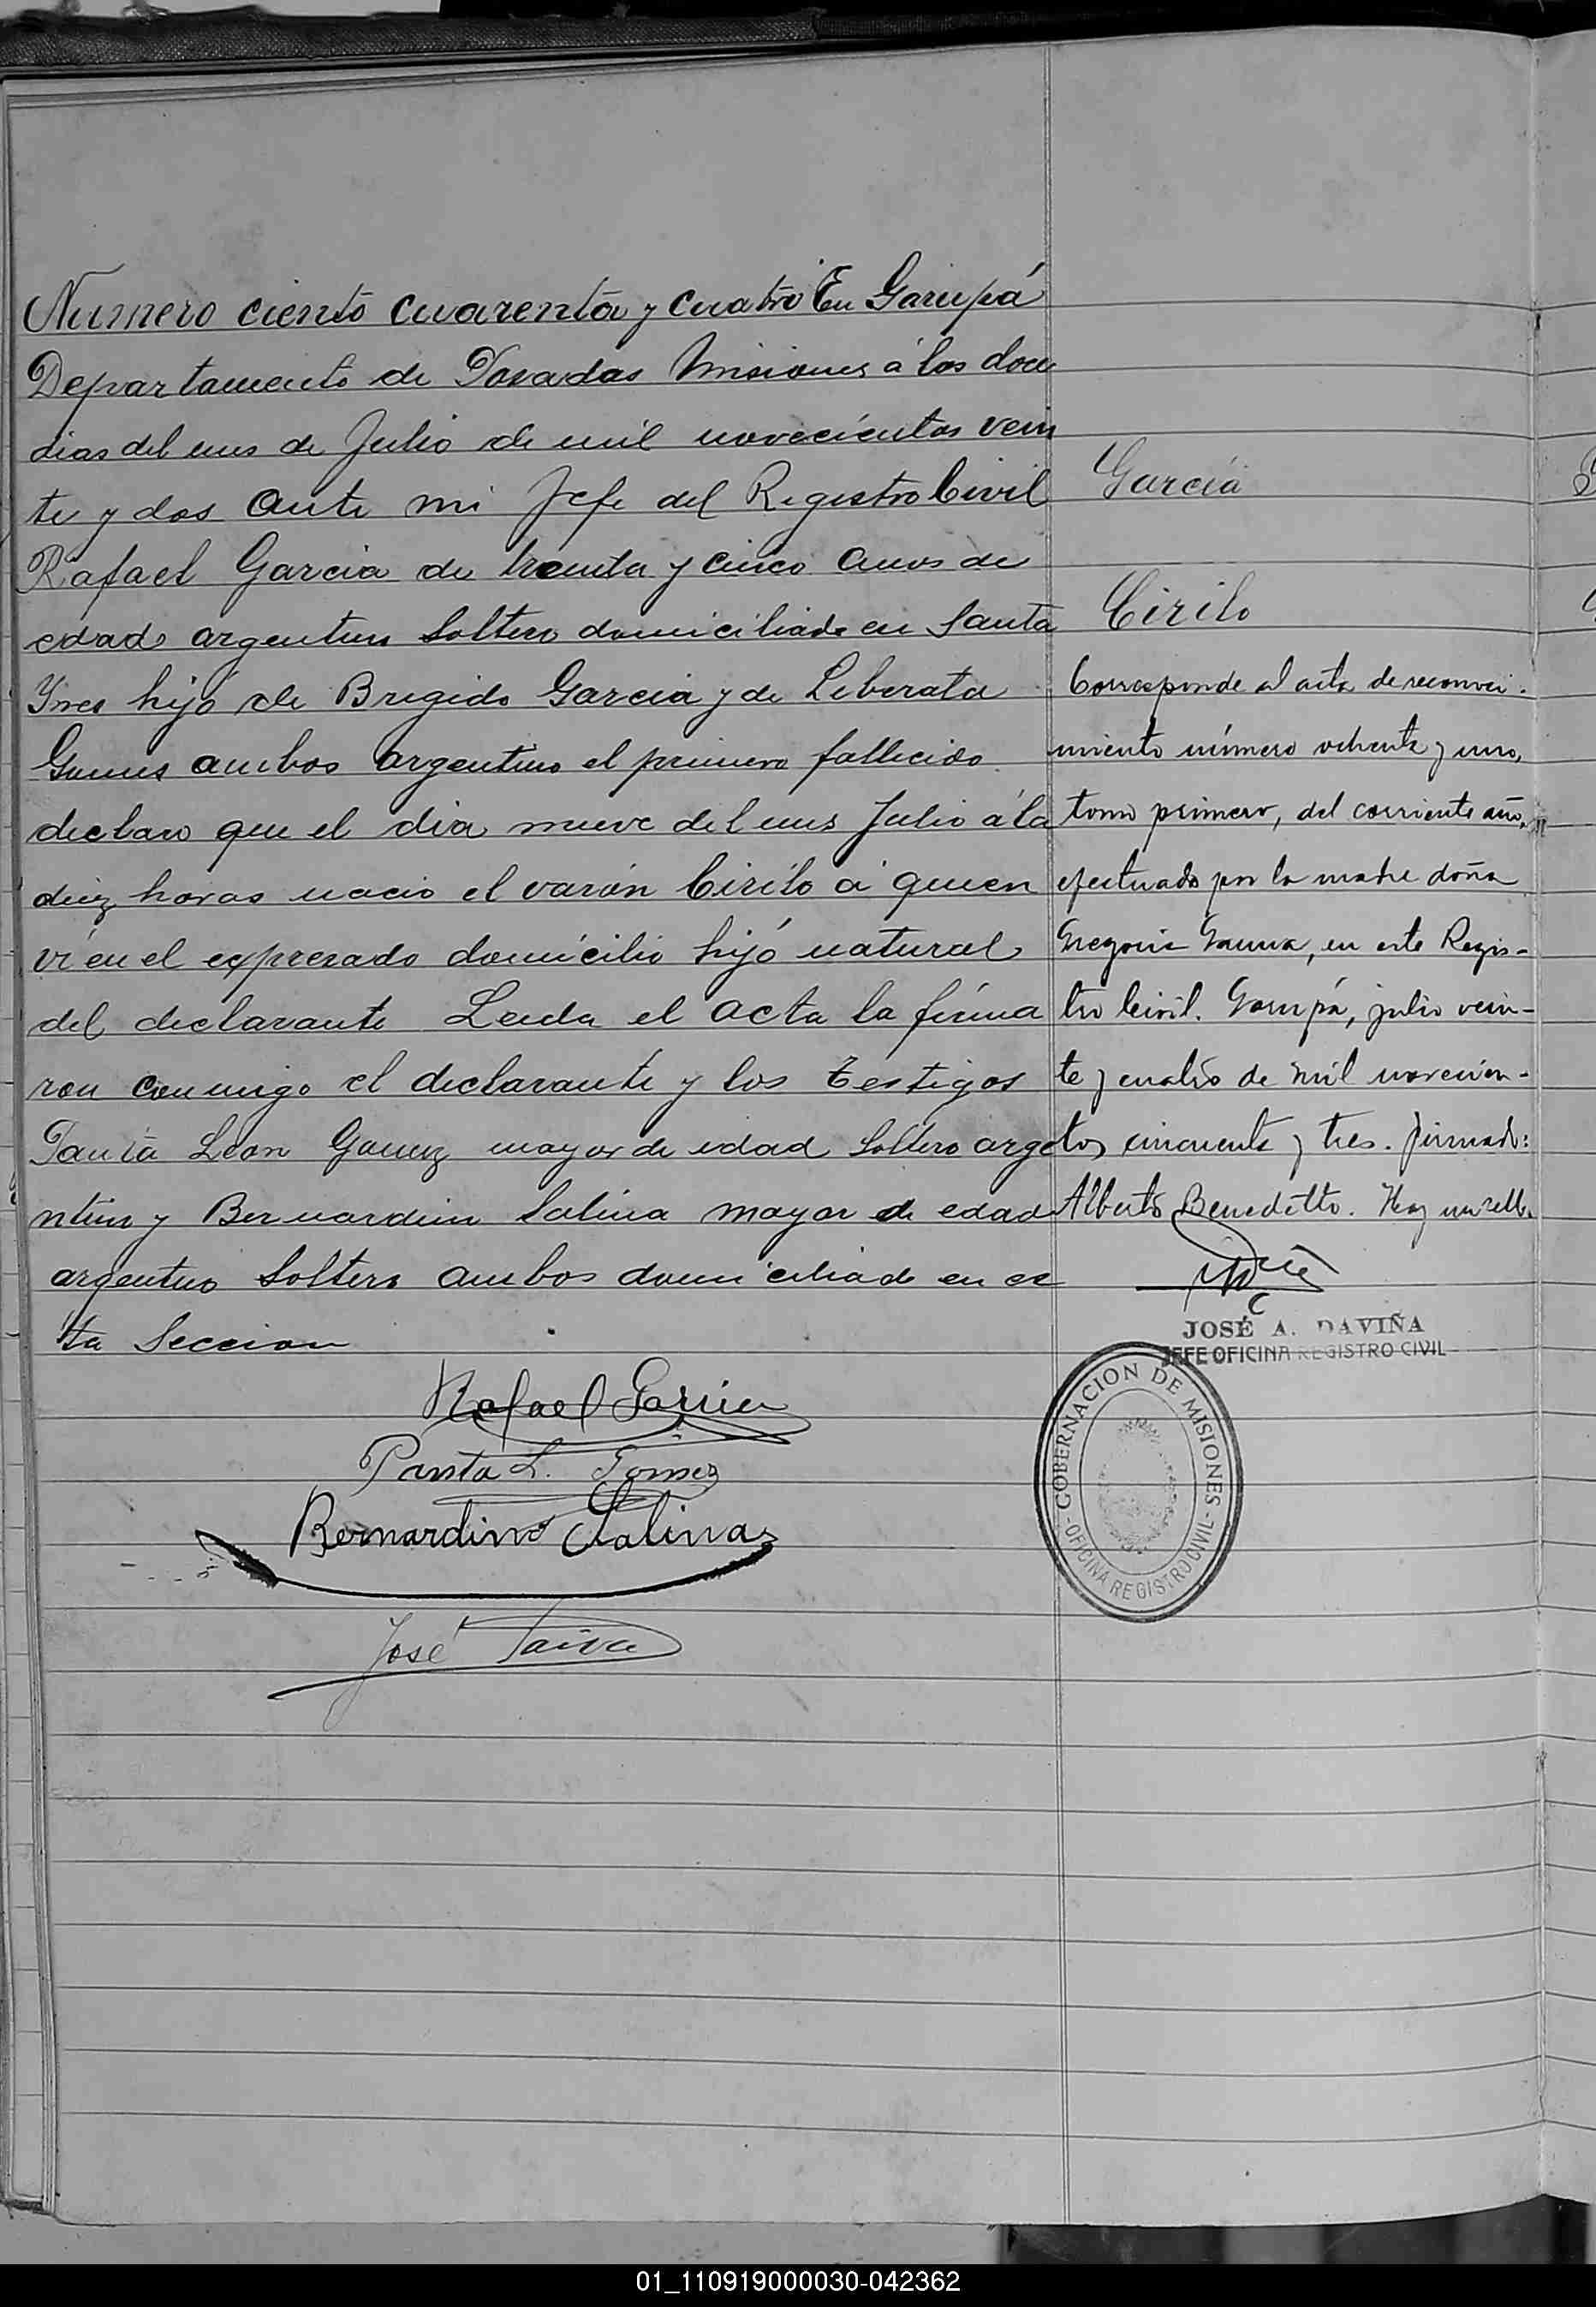 Numero ciento cuarenta y cuatro En Garupá
Departamento de Posadas Misiones á los doce
dias del mes de Julio de mil novecientos vein
te y dos ante mi Jefe del Registro Civil
Rafael Garcia de treinta y cinco anos de
edad argentino Soltero domiciliado en Santa
Ynes hijo de Brigido Garcia y de Liberata
ambos argentino el primero fallecido
declaro que el dia nueve del mes Julio á la
diez horas nacio el varón Cirilo á quien
vi en el expresado domicilio hijó natural
del declarante Leida el acta la firma
ron conmigo el declarante y los testigos
Panta Leon Gomez mayor de edad Soltero arge
ntino y Bernardino Salina mayor de edad
argentino Soltero ambos domiciliado en es
ta Seccion
Rafael Garcia
Panta L. Gomez
Bernardino Salinas
José Paiva
García
Cirilo
Corresponde al acta de reconoci-
miento número ochenta y uno,
tomo primero, del corriente año,
efectuado por la madre doña
Gregoria Gauna, en este Regis-
tro Civil. Garupá, julio vein-
te y cuatro de mil novecien-
tos cincuenta y tres. firmado:
Alberto Benedetto. Hay un sello.
JOSÉ A. DAVIÑA
JEFE OFICINA REGISTRO CIVIL
GOBERNACION DE MISIONES
OFICINA REGISTRO CIVIL
01_110919000030-042362